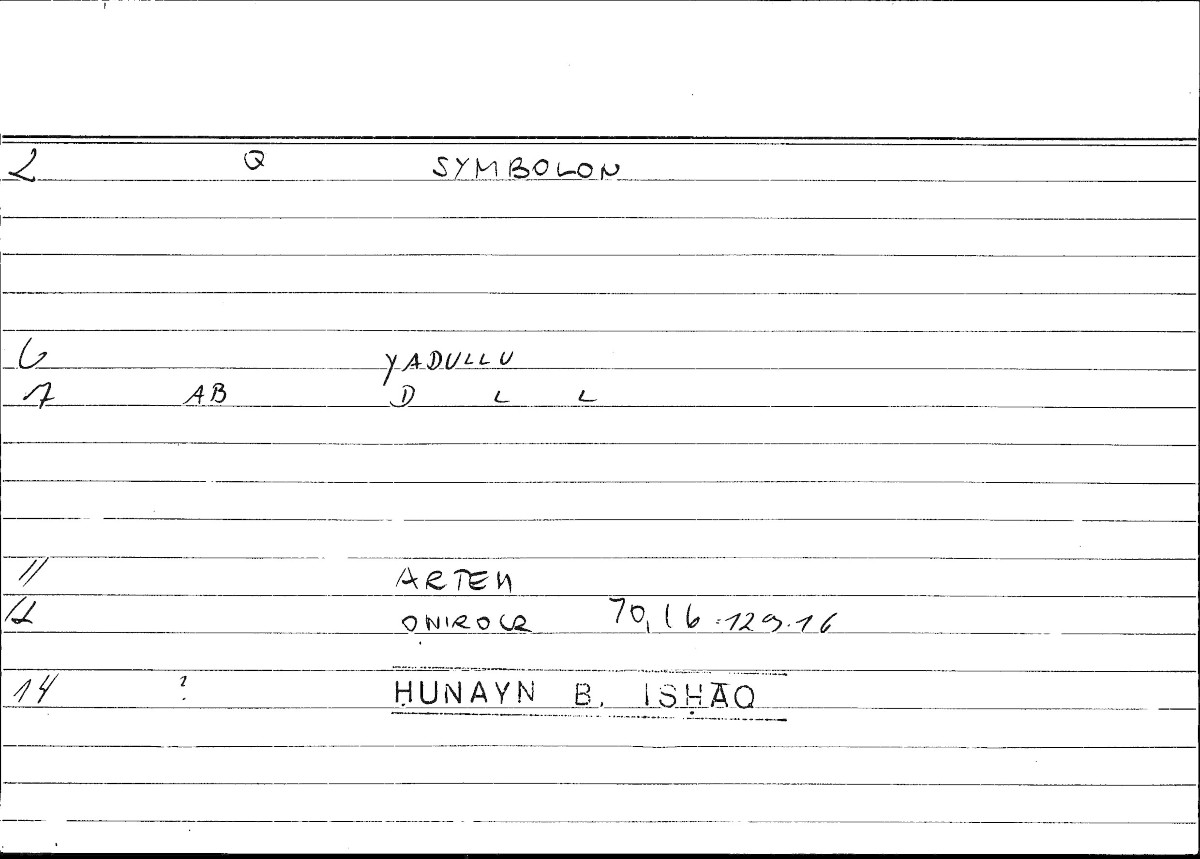 2 Q SYMBOLON
6 YADULLU
7 AB D L L
11 ARTEM
12 ONIROCR 70,16 · 129.16
14 ? ḤUNAYN B. ISḤĀQ